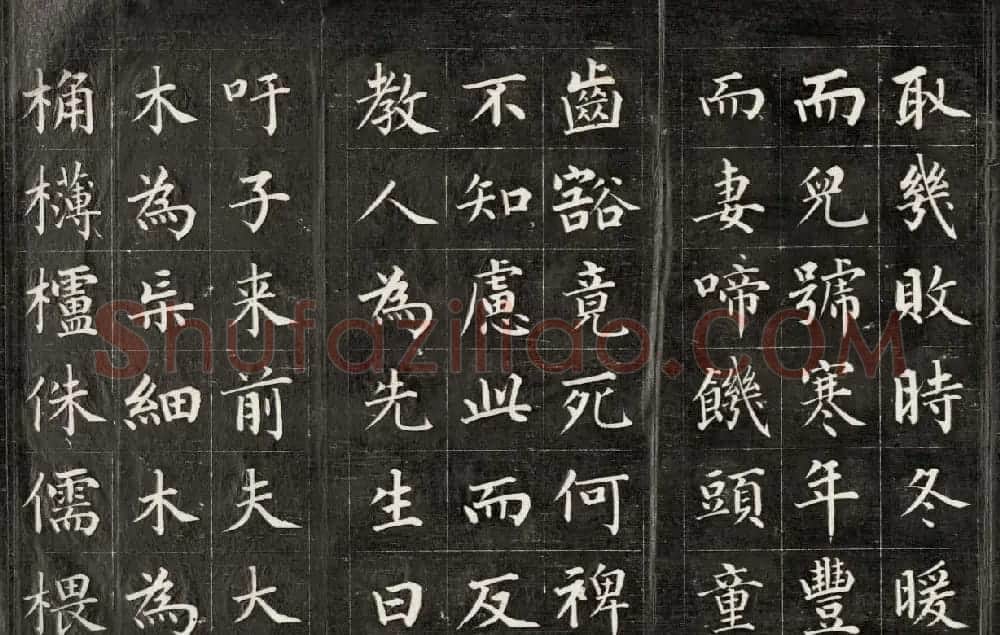 取幾敗時冬暖
而兒號寒年豐
而妻啼饑頭童
齒豁竟死何裨
不知慮此而反
教人為先生曰
吁子来前夫大
木為杗細木為
桷欂櫨侏儒椳
Shufaziliao.COM